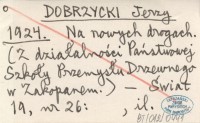 DOBRZYCKI Jerzy
1924. Na nowych drogach.
(Z działalności Państwowej
Szkoły Przemysłu Drzewnego
w Zakopanem.) - Świat
19, nr 26: , il.